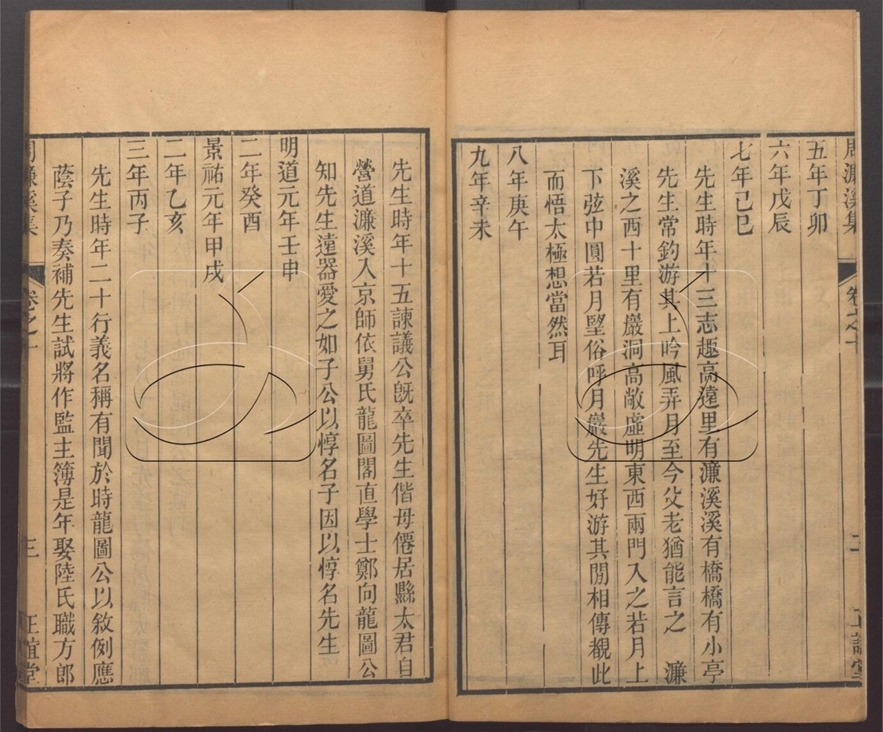 周濂溪集 卷之十 二 正誼堂
五年丁卯
六年戊辰
七年己巳
先生時年十三志趣高遠里有濂溪溪有橋橋有小亭
先生常釣游其上吟風弄月至今父老猶能言之 濂
溪之西十里有巖洞高敞虛明東西兩門入之若月上
下弦中圓若月朢俗呼月巖先生好游其閒相傳覩此
而悟太極想當然耳
八年庚午
九年辛未
先生時年十五諫議公旣卒先生偕母僊居縣太君自
營道濂溪入京師依舅氏龍圖閣直學士鄭向龍圖公
知先生遠器愛之如子公以惇名子因以惇名先生
明道元年壬申
二年癸酉
景祐元年甲戌
二年乙亥
三年丙子
先生時年二十行義名稱有聞於時龍圖公以敘例應
蔭子乃奏補先生試將作監主簿是年娶陸氏職方郎
周濂溪集 卷之十 三 正誼堂